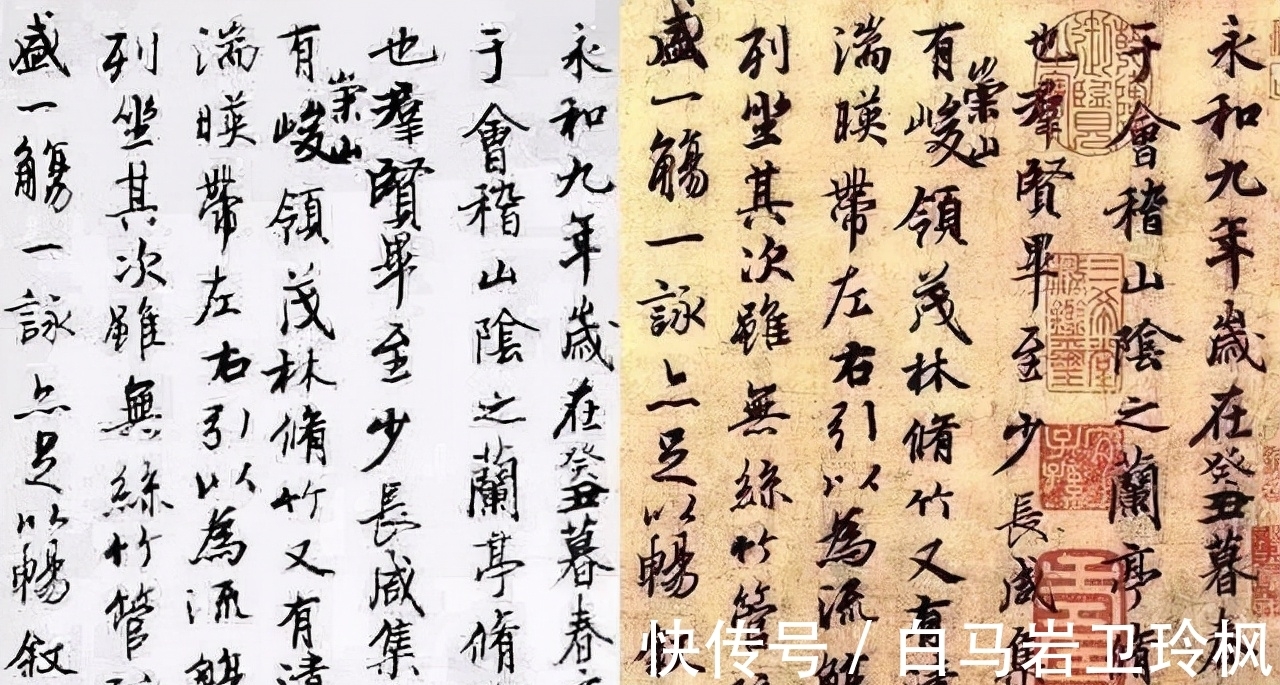 永和九年歲在癸丑暮春
于會稽山陰之蘭亭脩
也羣賢畢至少長咸集
有崇山峻領茂林脩竹又有清
湍暎帶左右引以為流觴
列坐其次雖無絲竹管
盛一觴一詠亦足以暢敘
永和九年歲在癸丑暮春
于會稽山陰之蘭亭脩
也羣賢畢至少長咸集
有崇山峻領茂林脩竹又有清
湍暎帶左右引以為流觴
列坐其次雖無絲竹管
盛一觴一詠亦足以暢
快传号 / 白马岩卫玲枫